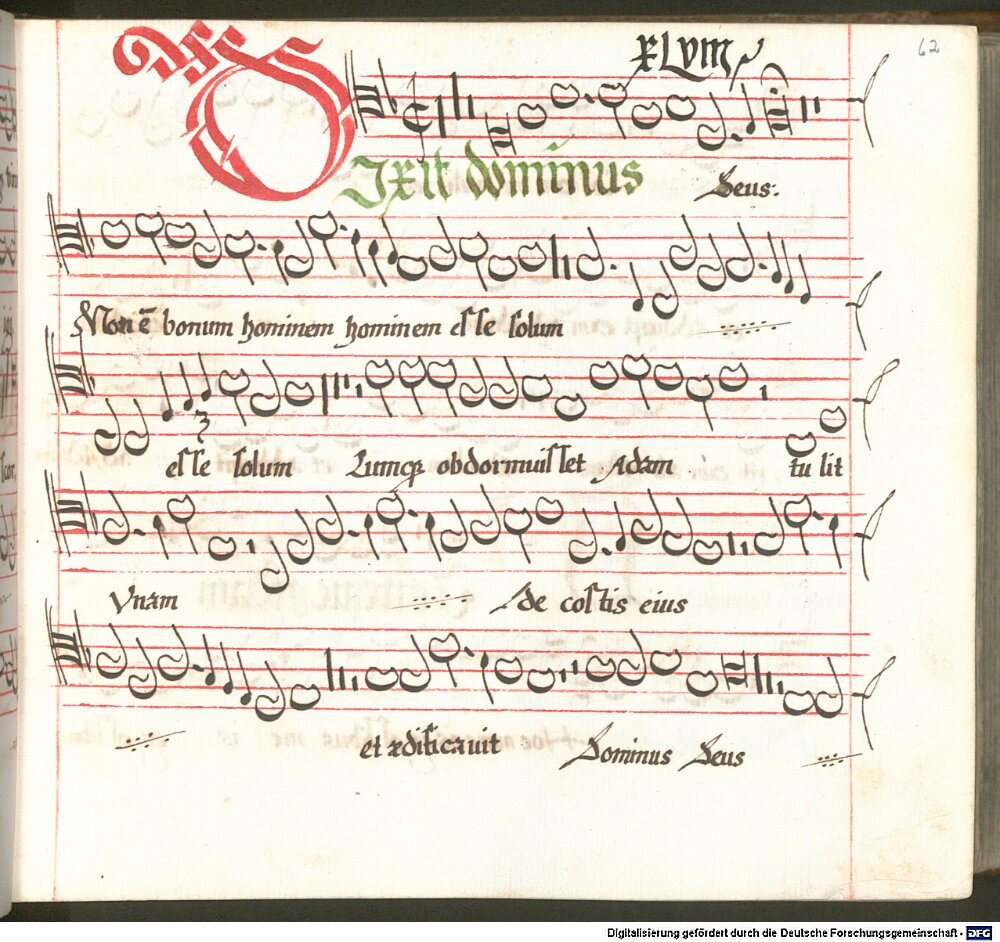 xlvııȷ 62
Dixit dominus Deus:
Non ē bonum hominem hominem esse solum
esse solum Cumqȝ obdormuisset Adam tulit
Vnam de costis eius
et ædificavit Dominus Deus
Digitalisierung gefördert durch die Deutsche Forschungsgemeinschaft - DFG